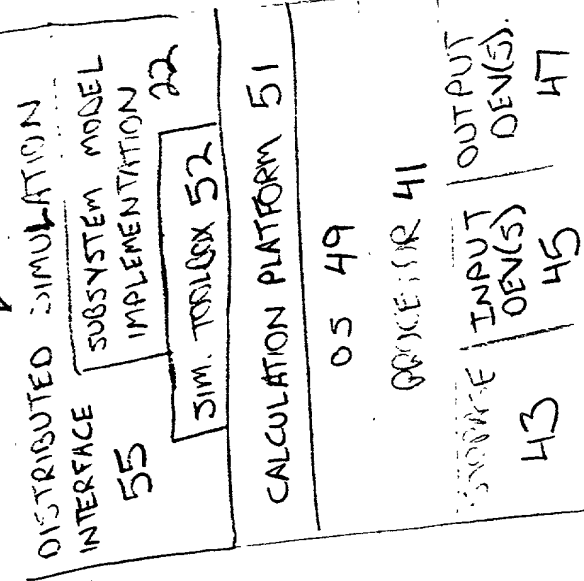 DISTRIBUTED SIMULATION
INTERFACE
55
SUBSYSTEM MODEL
IMPLEMENTATION
22
SIM. TOOLBOX 52
CALCULATION PLATFORM 51
OS 49
PROCESSOR 41
STORAGE
43
INPUT
DEV(S)
45
OUTPUT
DEV(S).
47